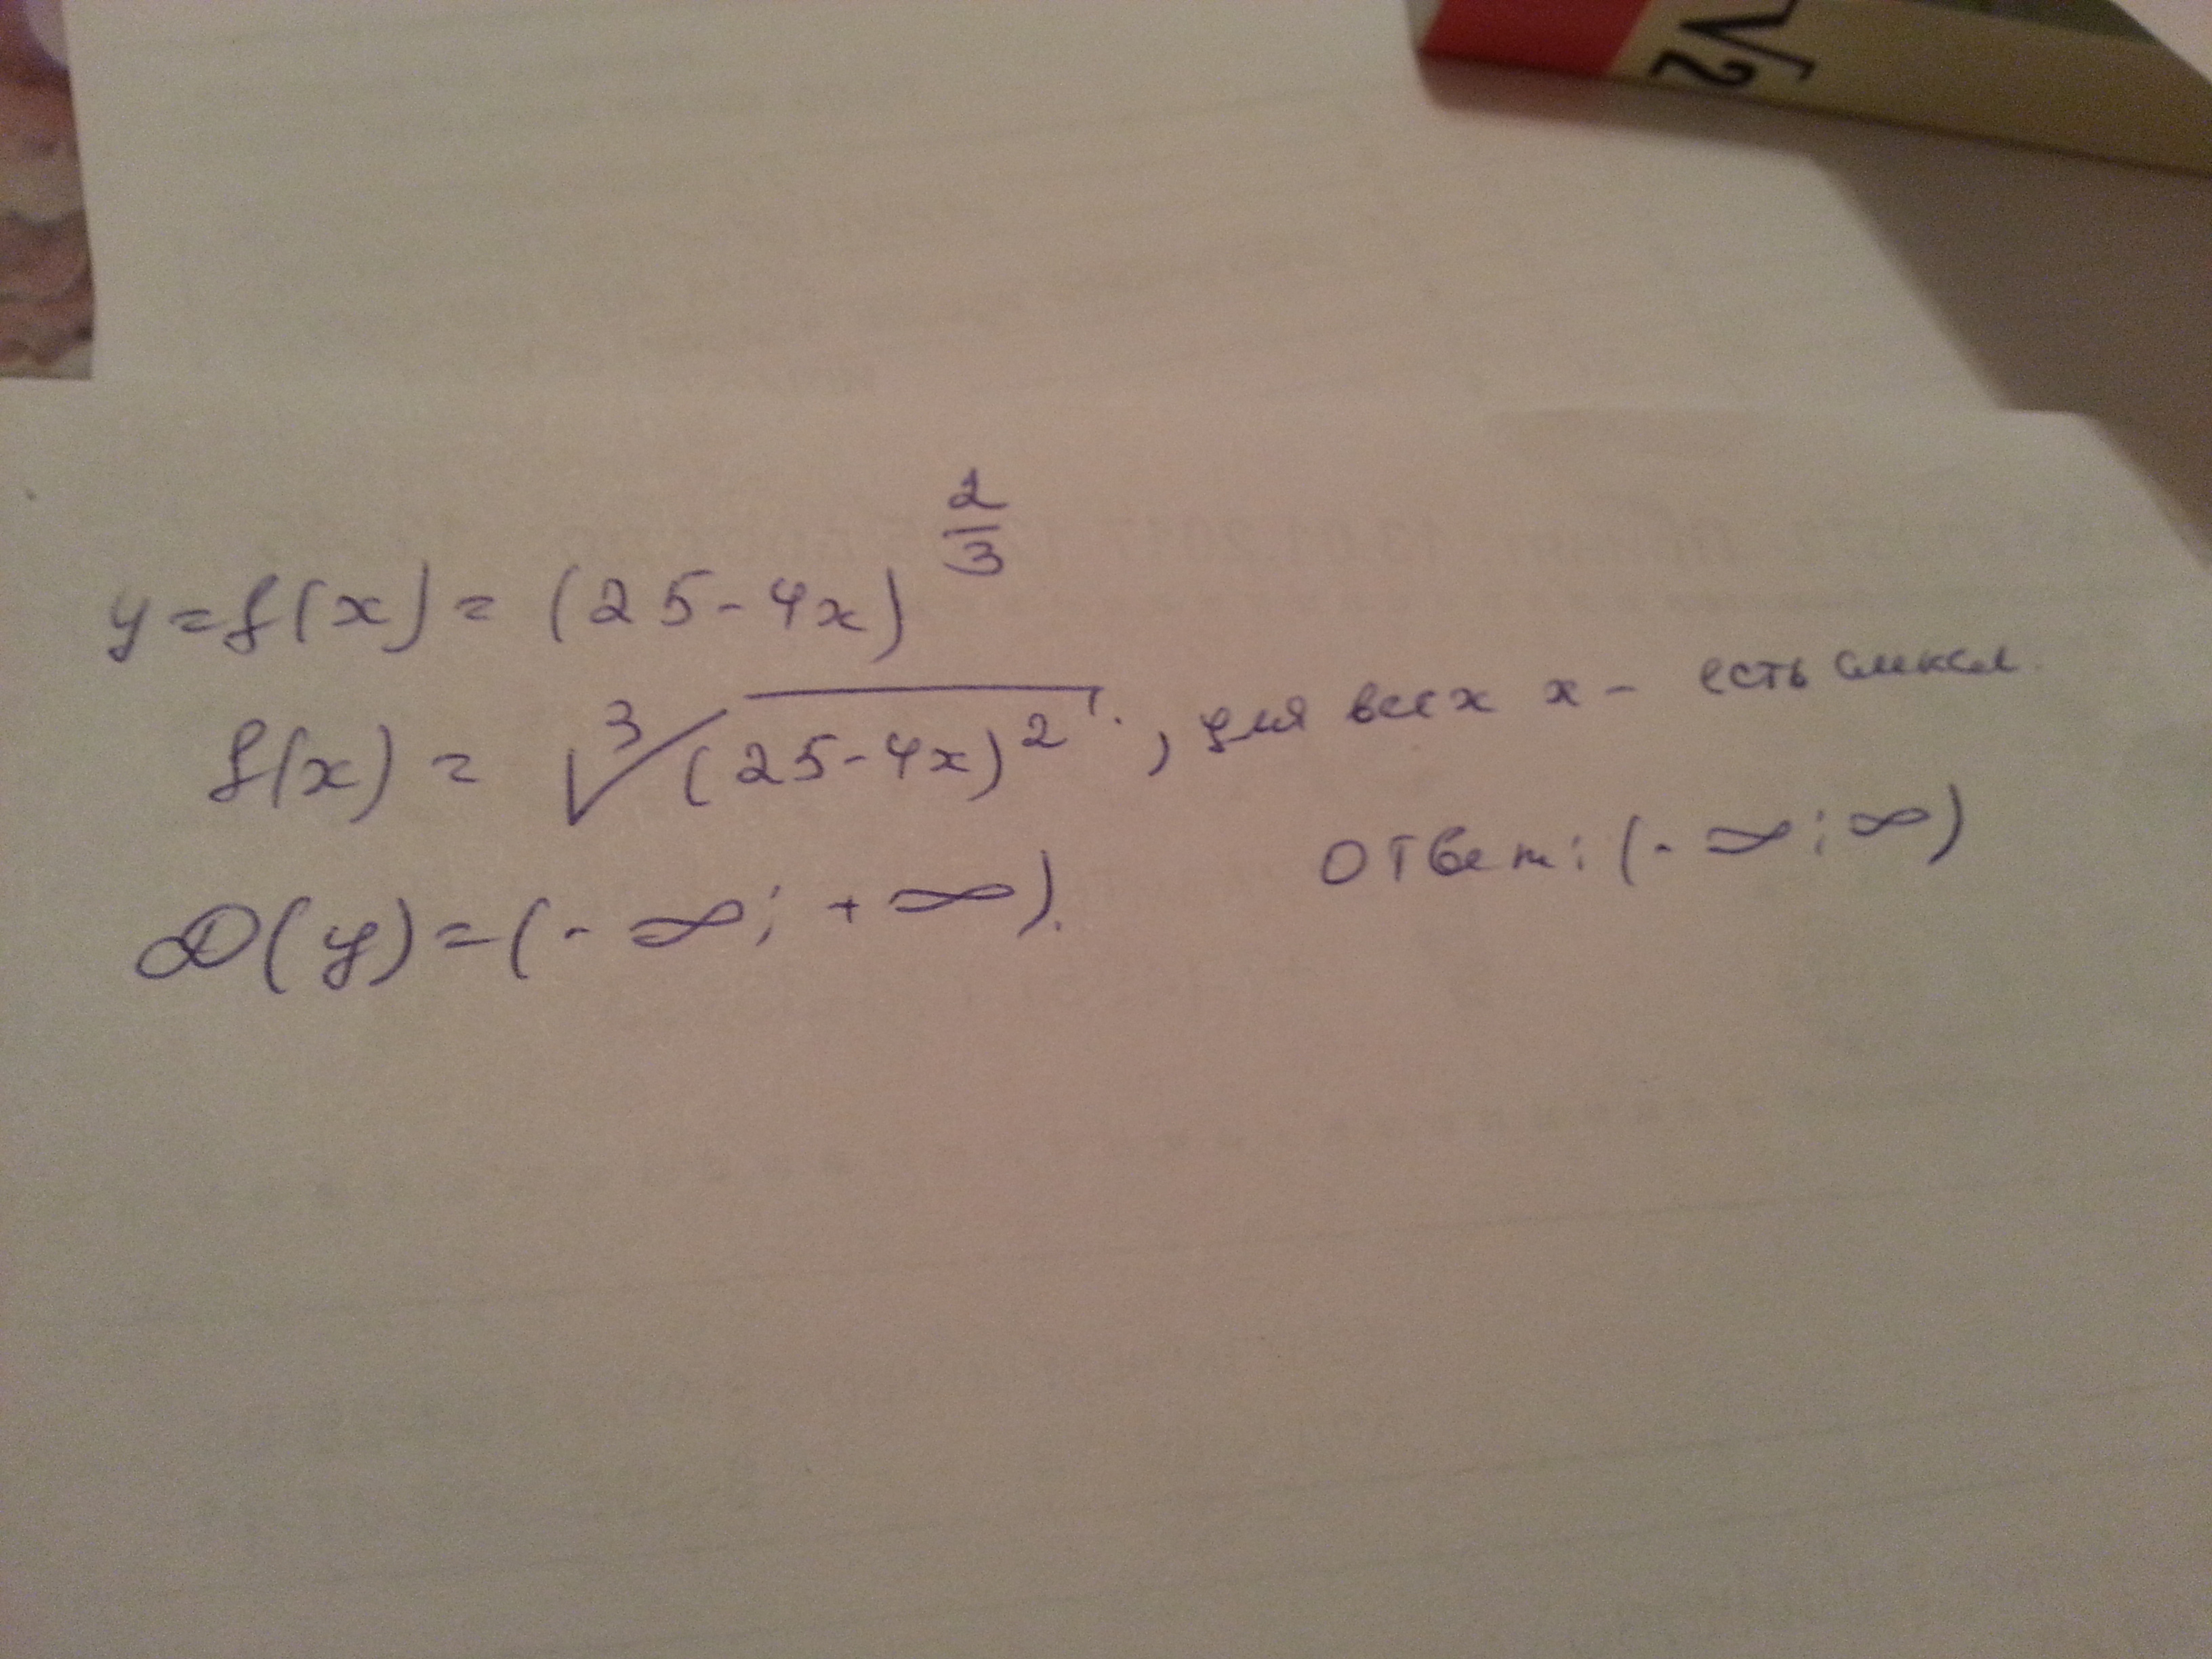 √2
y = f(x) = (25-4x)^{2/3}
f(x) = ∛(25-4x)², для всех x - есть смысл.
D(y) = (-∞; +∞). Ответ: (-∞; ∞)